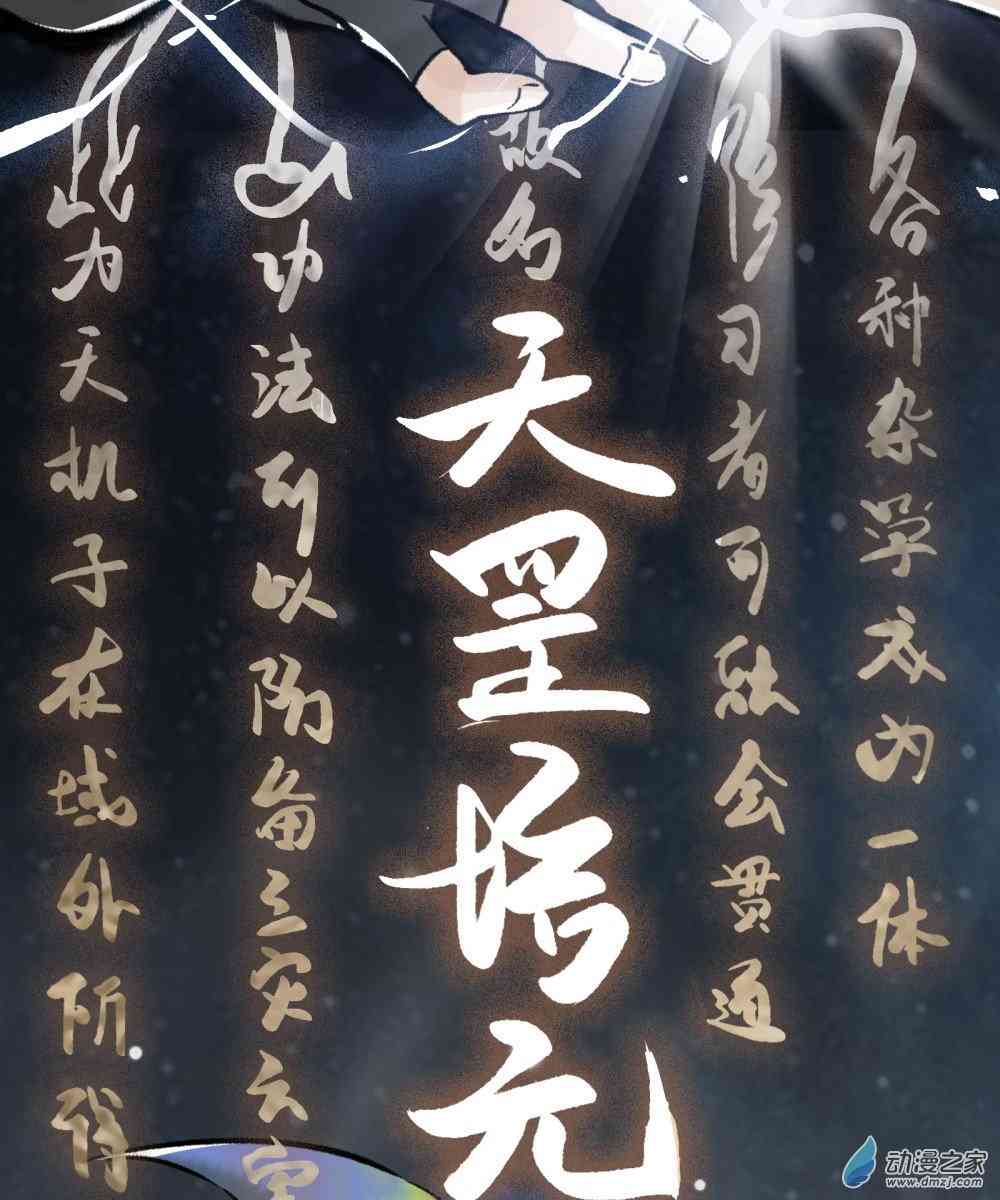 此为天机子在域外所得
此功法可以防备三灾六害
故名
天罡培元
修习者可融会贯通
各种杂学成为一体
动漫之家
www.dmzj.com